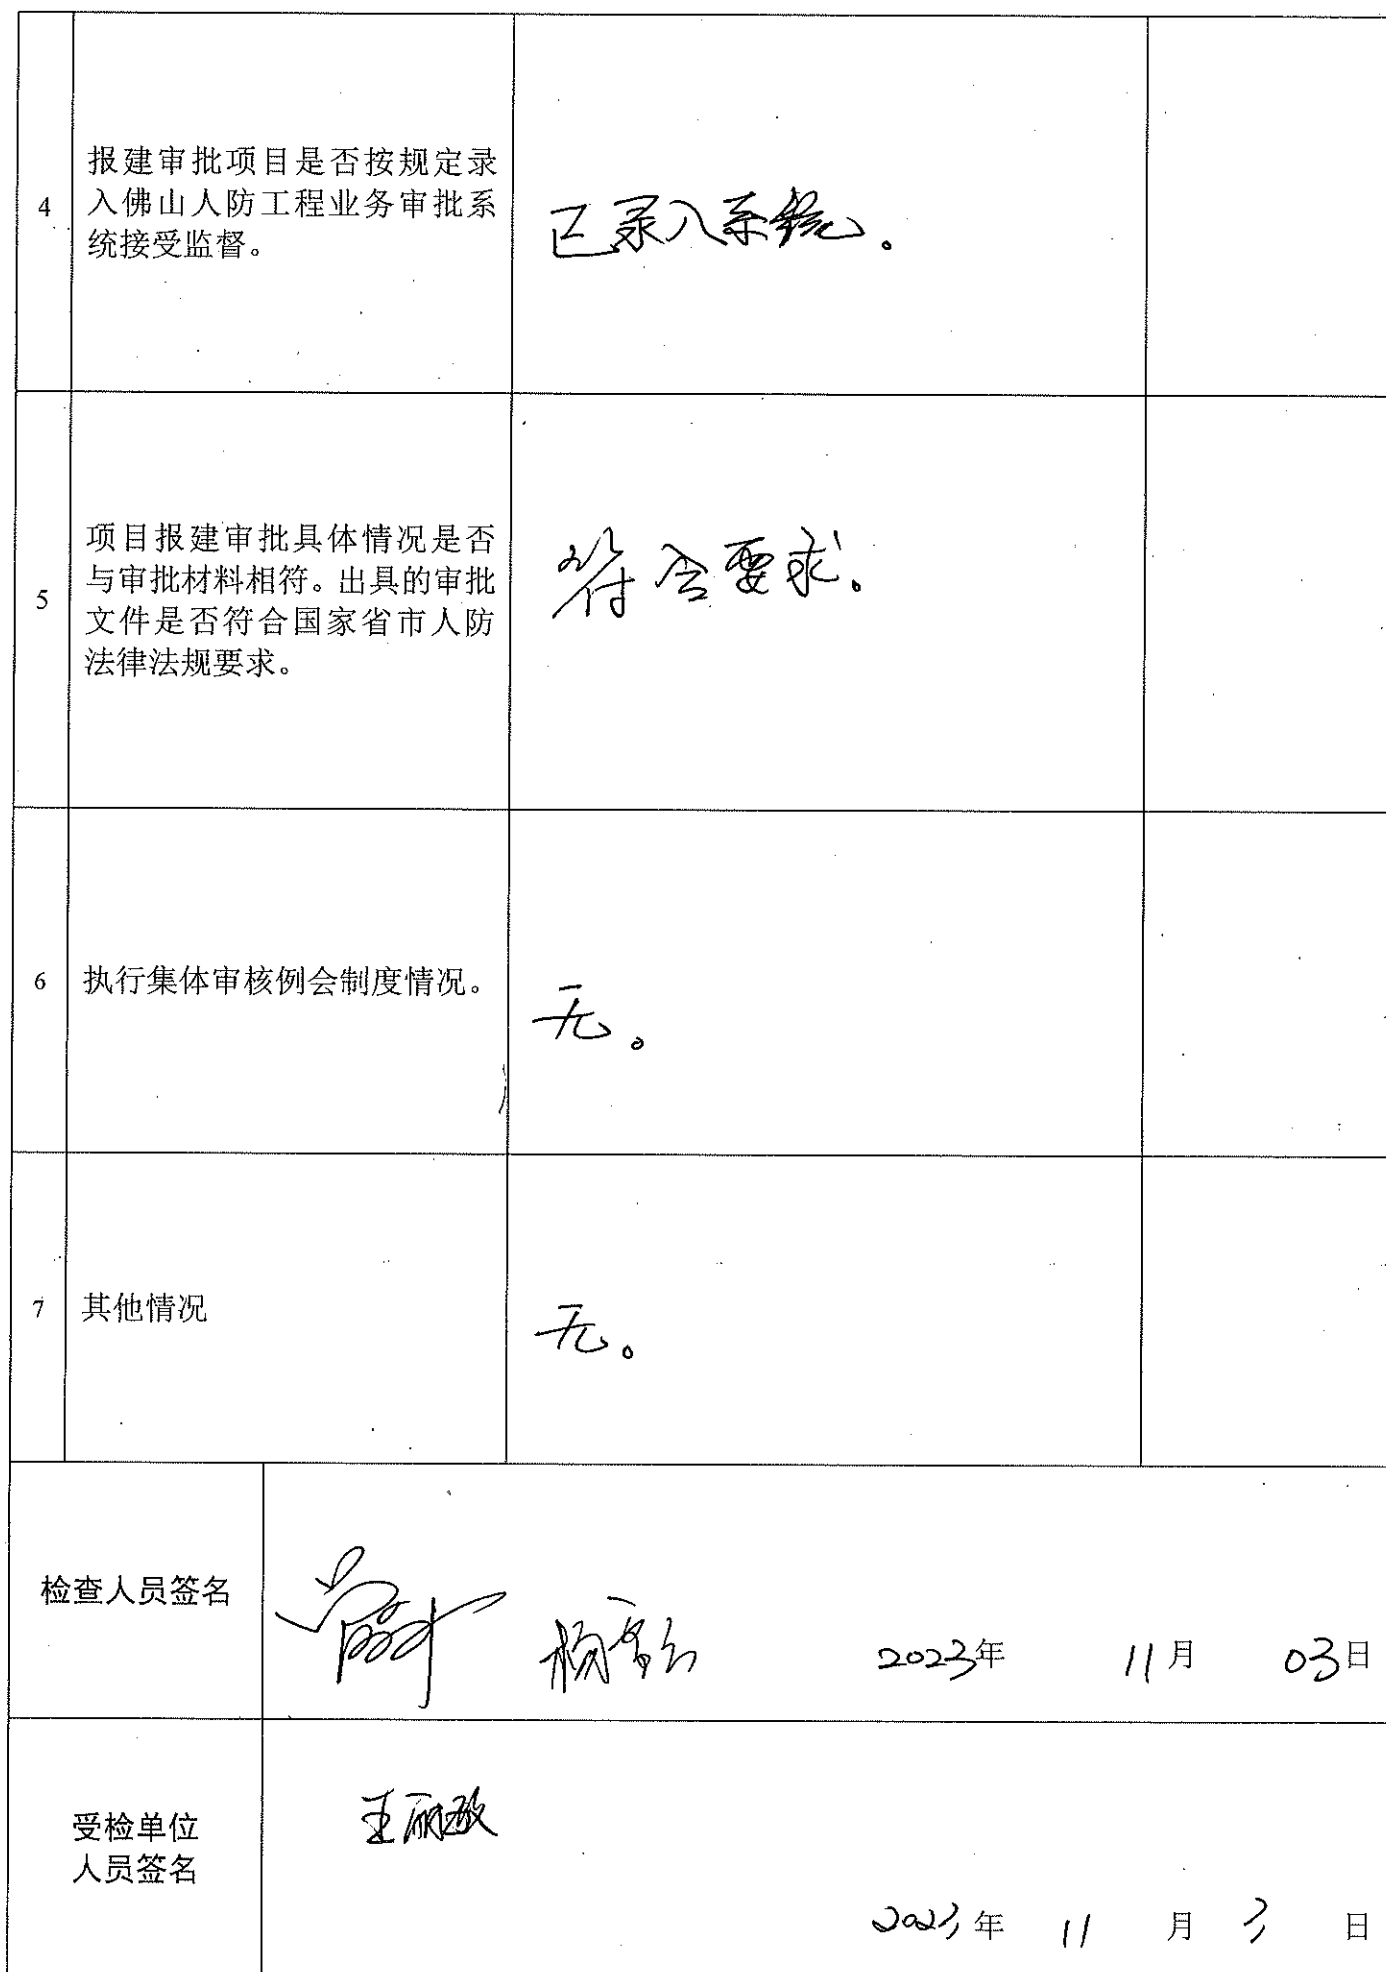 4
报建审批项目是否按规定录
入佛山人防工程业务审批系
统接受监督。
已录入系统。
5
项目报建审批具体情况是否
与审批材料相符。出具的审批
文件是否符合国家省市人防
法律法规要求。
符合要求。
6
执行集体审核例会制度情况。
无。
7
其他情况
无。
检查人员签名
2023年 11月 03日
受检单位
人员签名
王丽敏
2023年 11 月 3 日